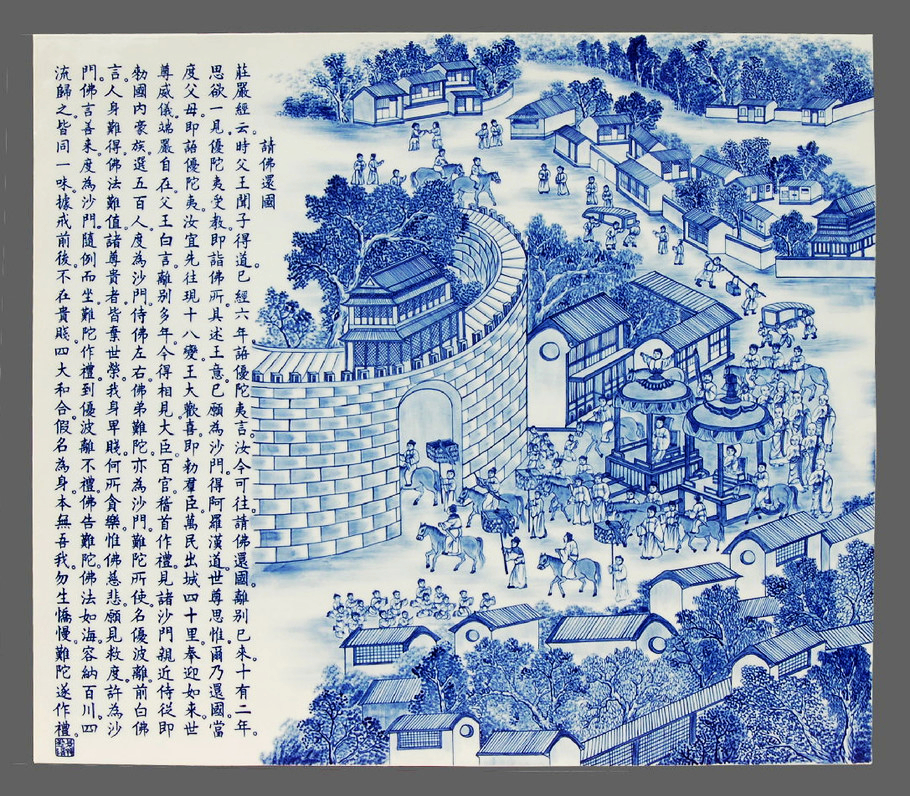 請佛還國
莊嚴經云。時父王聞子得道已經六年。語優陀夷言。汝今可往請佛還國。離別已來十有二年。
思欲一見。優陀夷受教即詣佛所。具述王意。已願為沙門。得阿羅漢道。世尊思惟。爾乃還國。當
度父母。即語優陀夷。汝宜先往現十八變。王大歡喜。即勑羣臣萬民出城四十里。奉迎如來。世
尊威儀端嚴自在。父王白言。離別多年。今得相見。大臣百官稽首作禮。見諸沙門親近侍從。即
勑國內豪族選五百人。度為沙門。侍佛左右。佛弟難陀亦為沙門。難陀所使名優波離。前白佛
言。人身難得。佛法難值。諸尊貴者皆棄世榮。我身卑賤。何所貪樂。惟佛慈悲。願見救度。許為沙
門。佛言善來。度為沙門。隨例而坐。難陀作禮。到優波離不禮。佛告難陀。佛法如海。容納百川。四
流歸之。皆同一味。據戒前後。不在貴賤。四大和合。假名為身。本無吾我。勿生憍慢。難陀遂作禮。